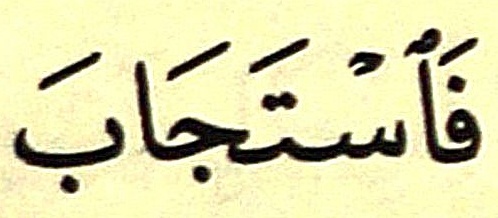 فَٱسْتَجَابَ